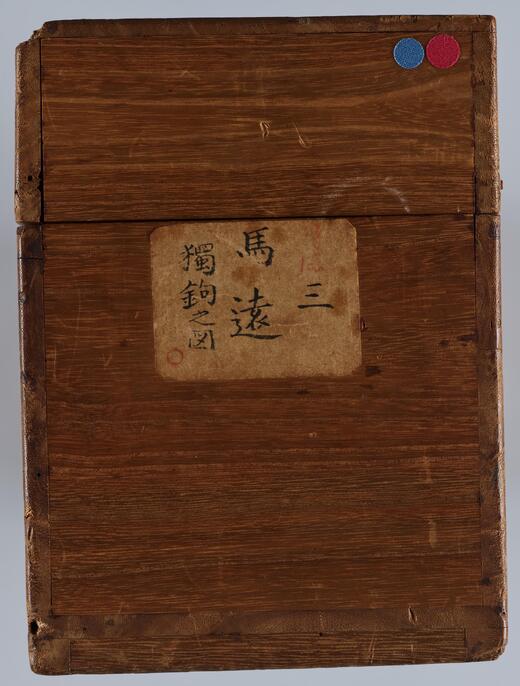 三
馬遠
獨鈎之図